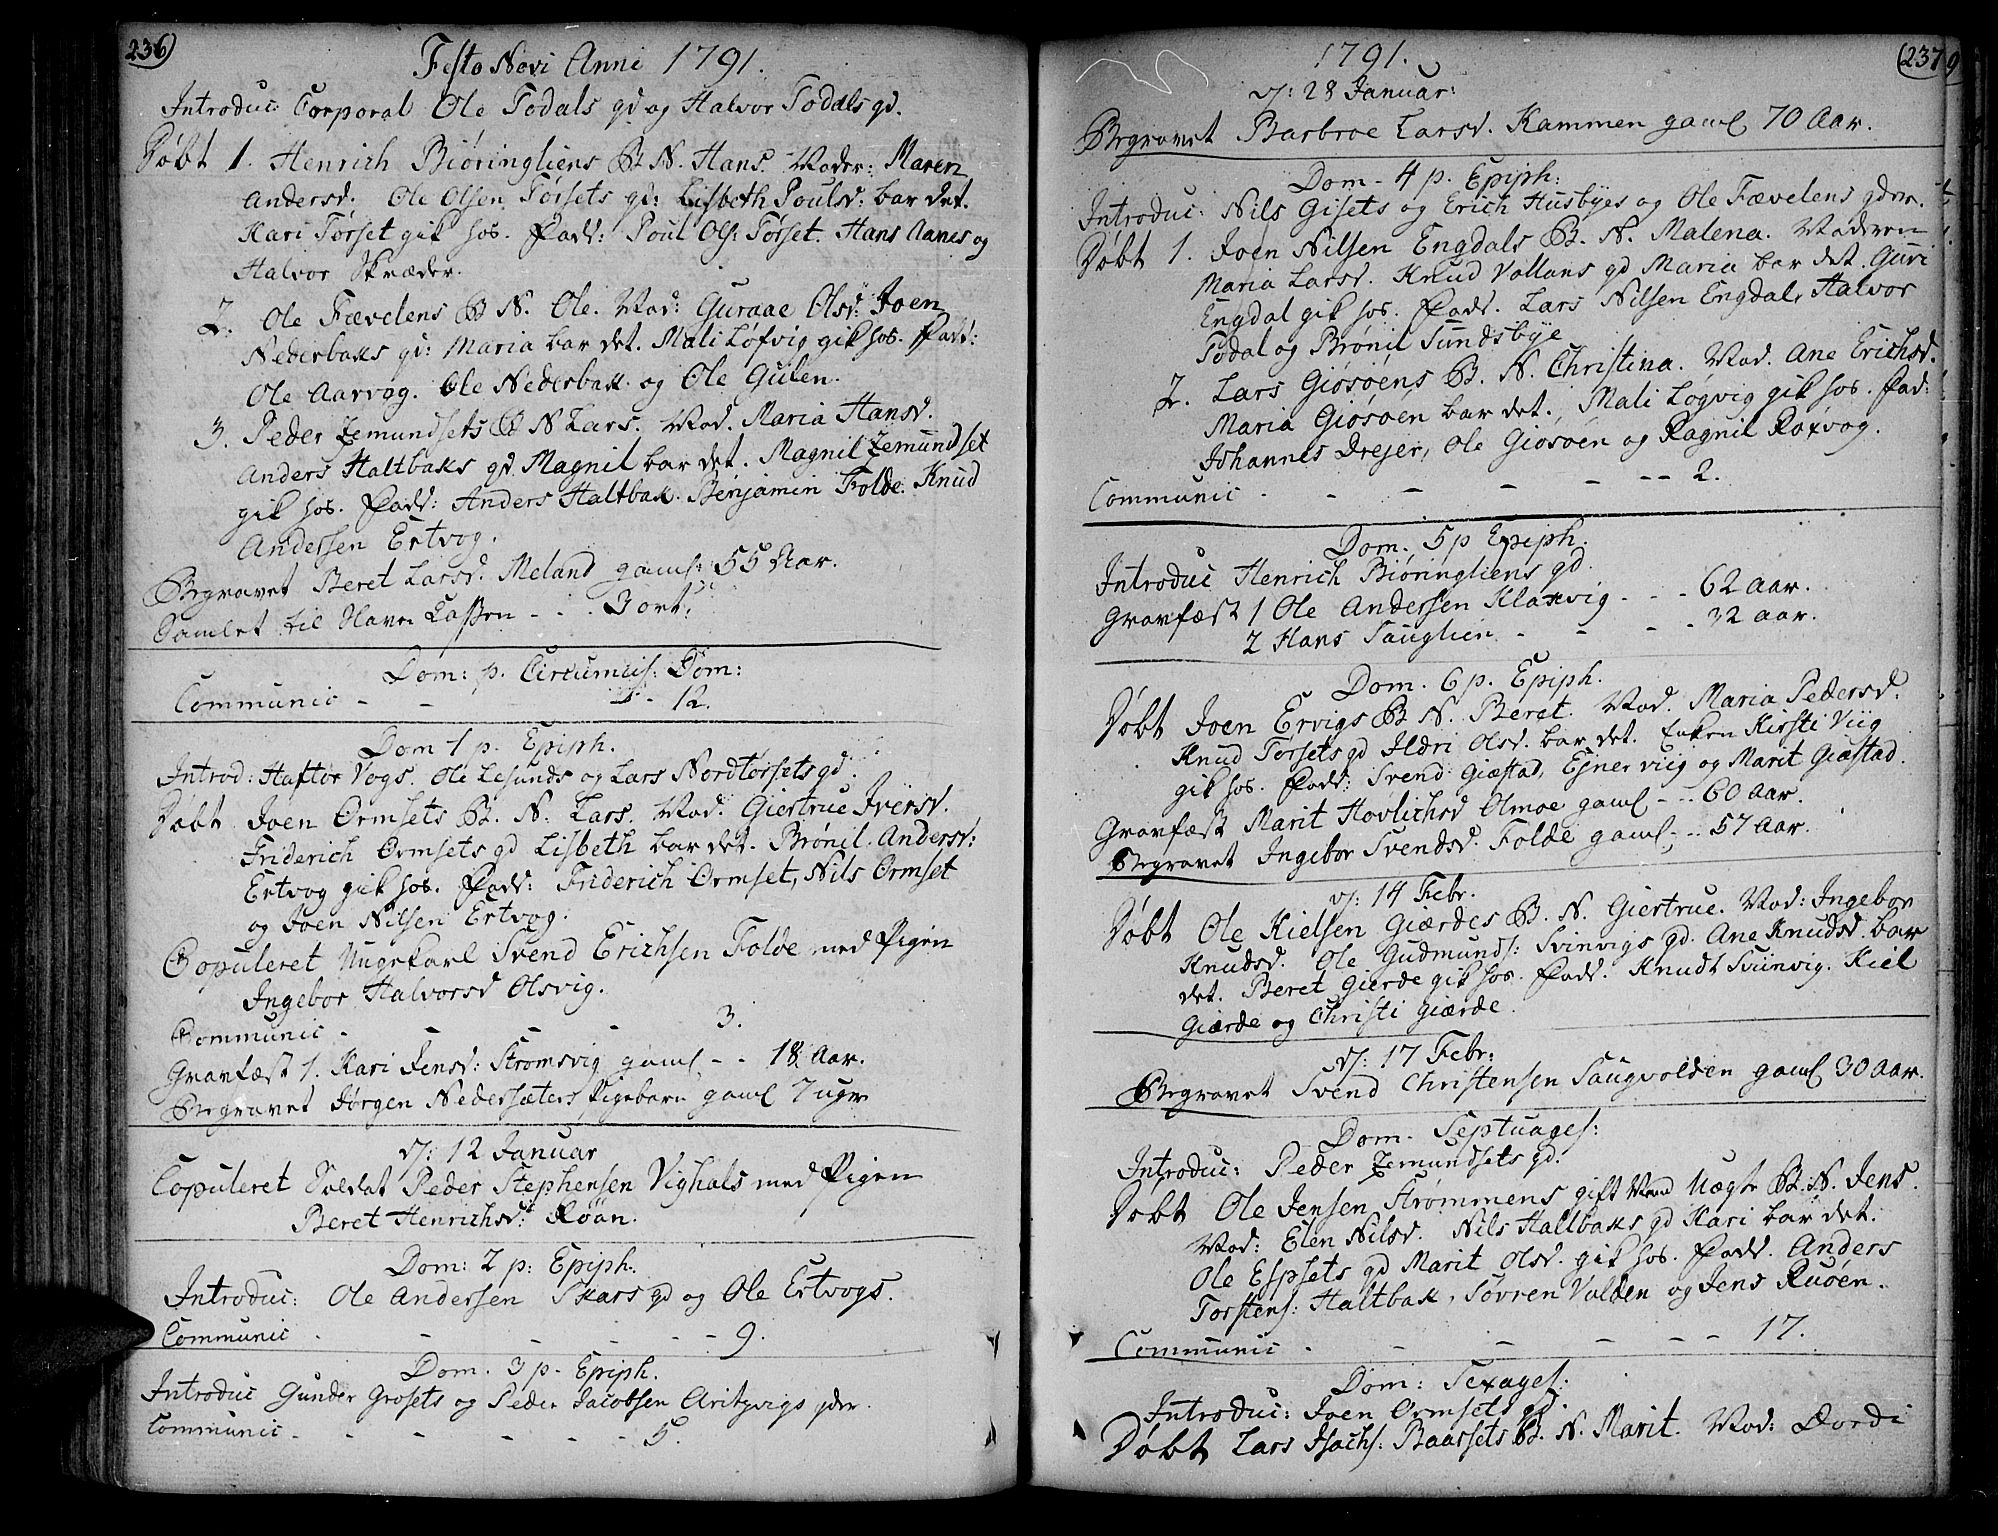 236)
Festo Novi Anni 1791.
Introduc: Corporal Ole Todals qd og Halvor Todals qd.
Døbt 1. Henrich Biøringliens B. N. Hans. Mader: Maren
Andersd. Ole Olsen Tørsets qd: Lisbeth Poulsd: bar det.
Kari Tørset gik hos. Fadd: Poul Ols: Tørset. Hans Aanes og
Halvor Skræder.
2. Ole Fævelens B N. Ole. Mod: Guraae Olsd: Joen
Nederbaks qd: Maria bar det. Mali Løfvig gik hos. Fadd:
Ole Aarvog. Ole Nederbak og Ole Gulen.
3. Peder Zemundsets B N Lars. Mod. Maria Hansd.
Anders Haltbaks qd. Magnil bar det. Magnil Zemundset
gik hos. Fadd: Anders Haltbak. Benjamin Folde. Knud
Andersen Ertvog.
Begravet Beret Larsd. Meland gaml: 55 Aar.
Samlet til Haven Cassen - - - 3 ort.
Dom: p. Circumcis: Dom:
Communic - - - 12.
Dom 1 p. Epiph.
Introd: Haftor Vogs. Ole Lesunds og Lars Nordtørsets qd.
Døbt Joen Ormsets B. N. Lars. Mod. Giertrue Iversd.
Friderich Ormsets qd Lisbeth bar det. Brønil Andersd:
Ertvog gik hos. Fadd: Friderich Ormset, Nils Ormset
og Joen Nilsen Ertvog.
Copuleret Ungekarl Svend Erichsen Folde med Pigen
Ingebor Halvorsd Olsvig.
Communic - - - 3.
Gravfæst 1. Kari Jensd: Stromsvig gaml - - 18 Aar.
Begravet Jørgen Nedersæters Pigebarn gaml 7 uger
d: 12 Januar
Copuleret Soldat Peder Stephensen Vighals med Pigen
Beret Henrichsd: Røan.
Dom: 2 p: Epiph.
Introduc: Ole Andersen Skars qd og Ole Ertvogs.
Communic - - - - - - 9.
Dom. 3 p. Epiph.
Introduc Gunder Grosets og Peder Jacobsen Aritzvigs qder.
Communic - - - - - - 5.
(237
1791.
d: 28 Januar:
Begravet Barbroe Larsd. Kammen gaml 70 Aar.
Dom - 4 p. Epiph:
Introduc: Nils Gisets og Erich Husbyes og Ole Fævelens qder.
Døbt 1. Joen Nilsen Engdals B. N. Malena. Moderen
Maria Larsd. Knud Vollans qd Maria bar det. Guri
Engdal gik hos. Fadd. Lars Nilsen Engdal, Halvor
Todal og Brønil Sundsbye
2. Lars Giøsøens B. N. Christina. Mod. Ane Erichsd.
Maria Giøsøen bar det. Mali Løgvig gik hos. Fad:
Johannes Drejer, Ole Giøsøen og Ragnil Roxvog.
Communic - - - - - - 2.
Dom. 5 p Epiph.
Introduc Henrich Biøringliens qd.
Gravfæst 1 Ole Andersen Klaxvig - - - 62 Aar.
2 Hans Sauglien - - - - 32 aar.
Dom. 6 p. Epiph.
Døbt Joen Ervigs B N. Beret. Mod. Maria Pedersd.
Knud Torsets qd Ildri Olsd. bar det. Enken Kirsti Viig
gik hos. Fadd: Svend Giæstad, Ejner viig og Marit Giæstad.
Gravfæst Marit Hovlichsd Olmoe gaml - - 60 Aar.
Begravet Ingebor Svendsd. Folde gaml - - 57 Aar.
d: 14 Febr.
Døbt Ole Kielsen Giærdes B. N. Giertrue. Mod: Ingebor
Knudsd. Ole Gudmunds: Svinvigs qd. Ane Knudsd. bar
det. Beret Gierde gik hos. Fadd. Knudt Sviinvig. Kiel
Giærde og Christi Giærde.
d: 17 Febr:
Begravet Svend Christensen Saugvolden gaml 30 Aar.
Dom. Septuages:
Introduc: Peder Zemundsets qd.
Døbt Ole Jensen Strømmens gift Mand Uægte B. N. Jens.
Mod: Elen Nilsd. Nils Haltbaks qd Kari bar det.
Ole Espsets qd Marit Olsd. gik hos. Fadd. Anders
Torstens: Haltbak, Søvren Valden og Jens Ruøen.
Communic - - - - - - 17.
Dom: Sexages:
Introduc: Joen Ormsets qd.
Døbt Lars Isachs: Baarsets B. N. Marit. Mod: Dordi